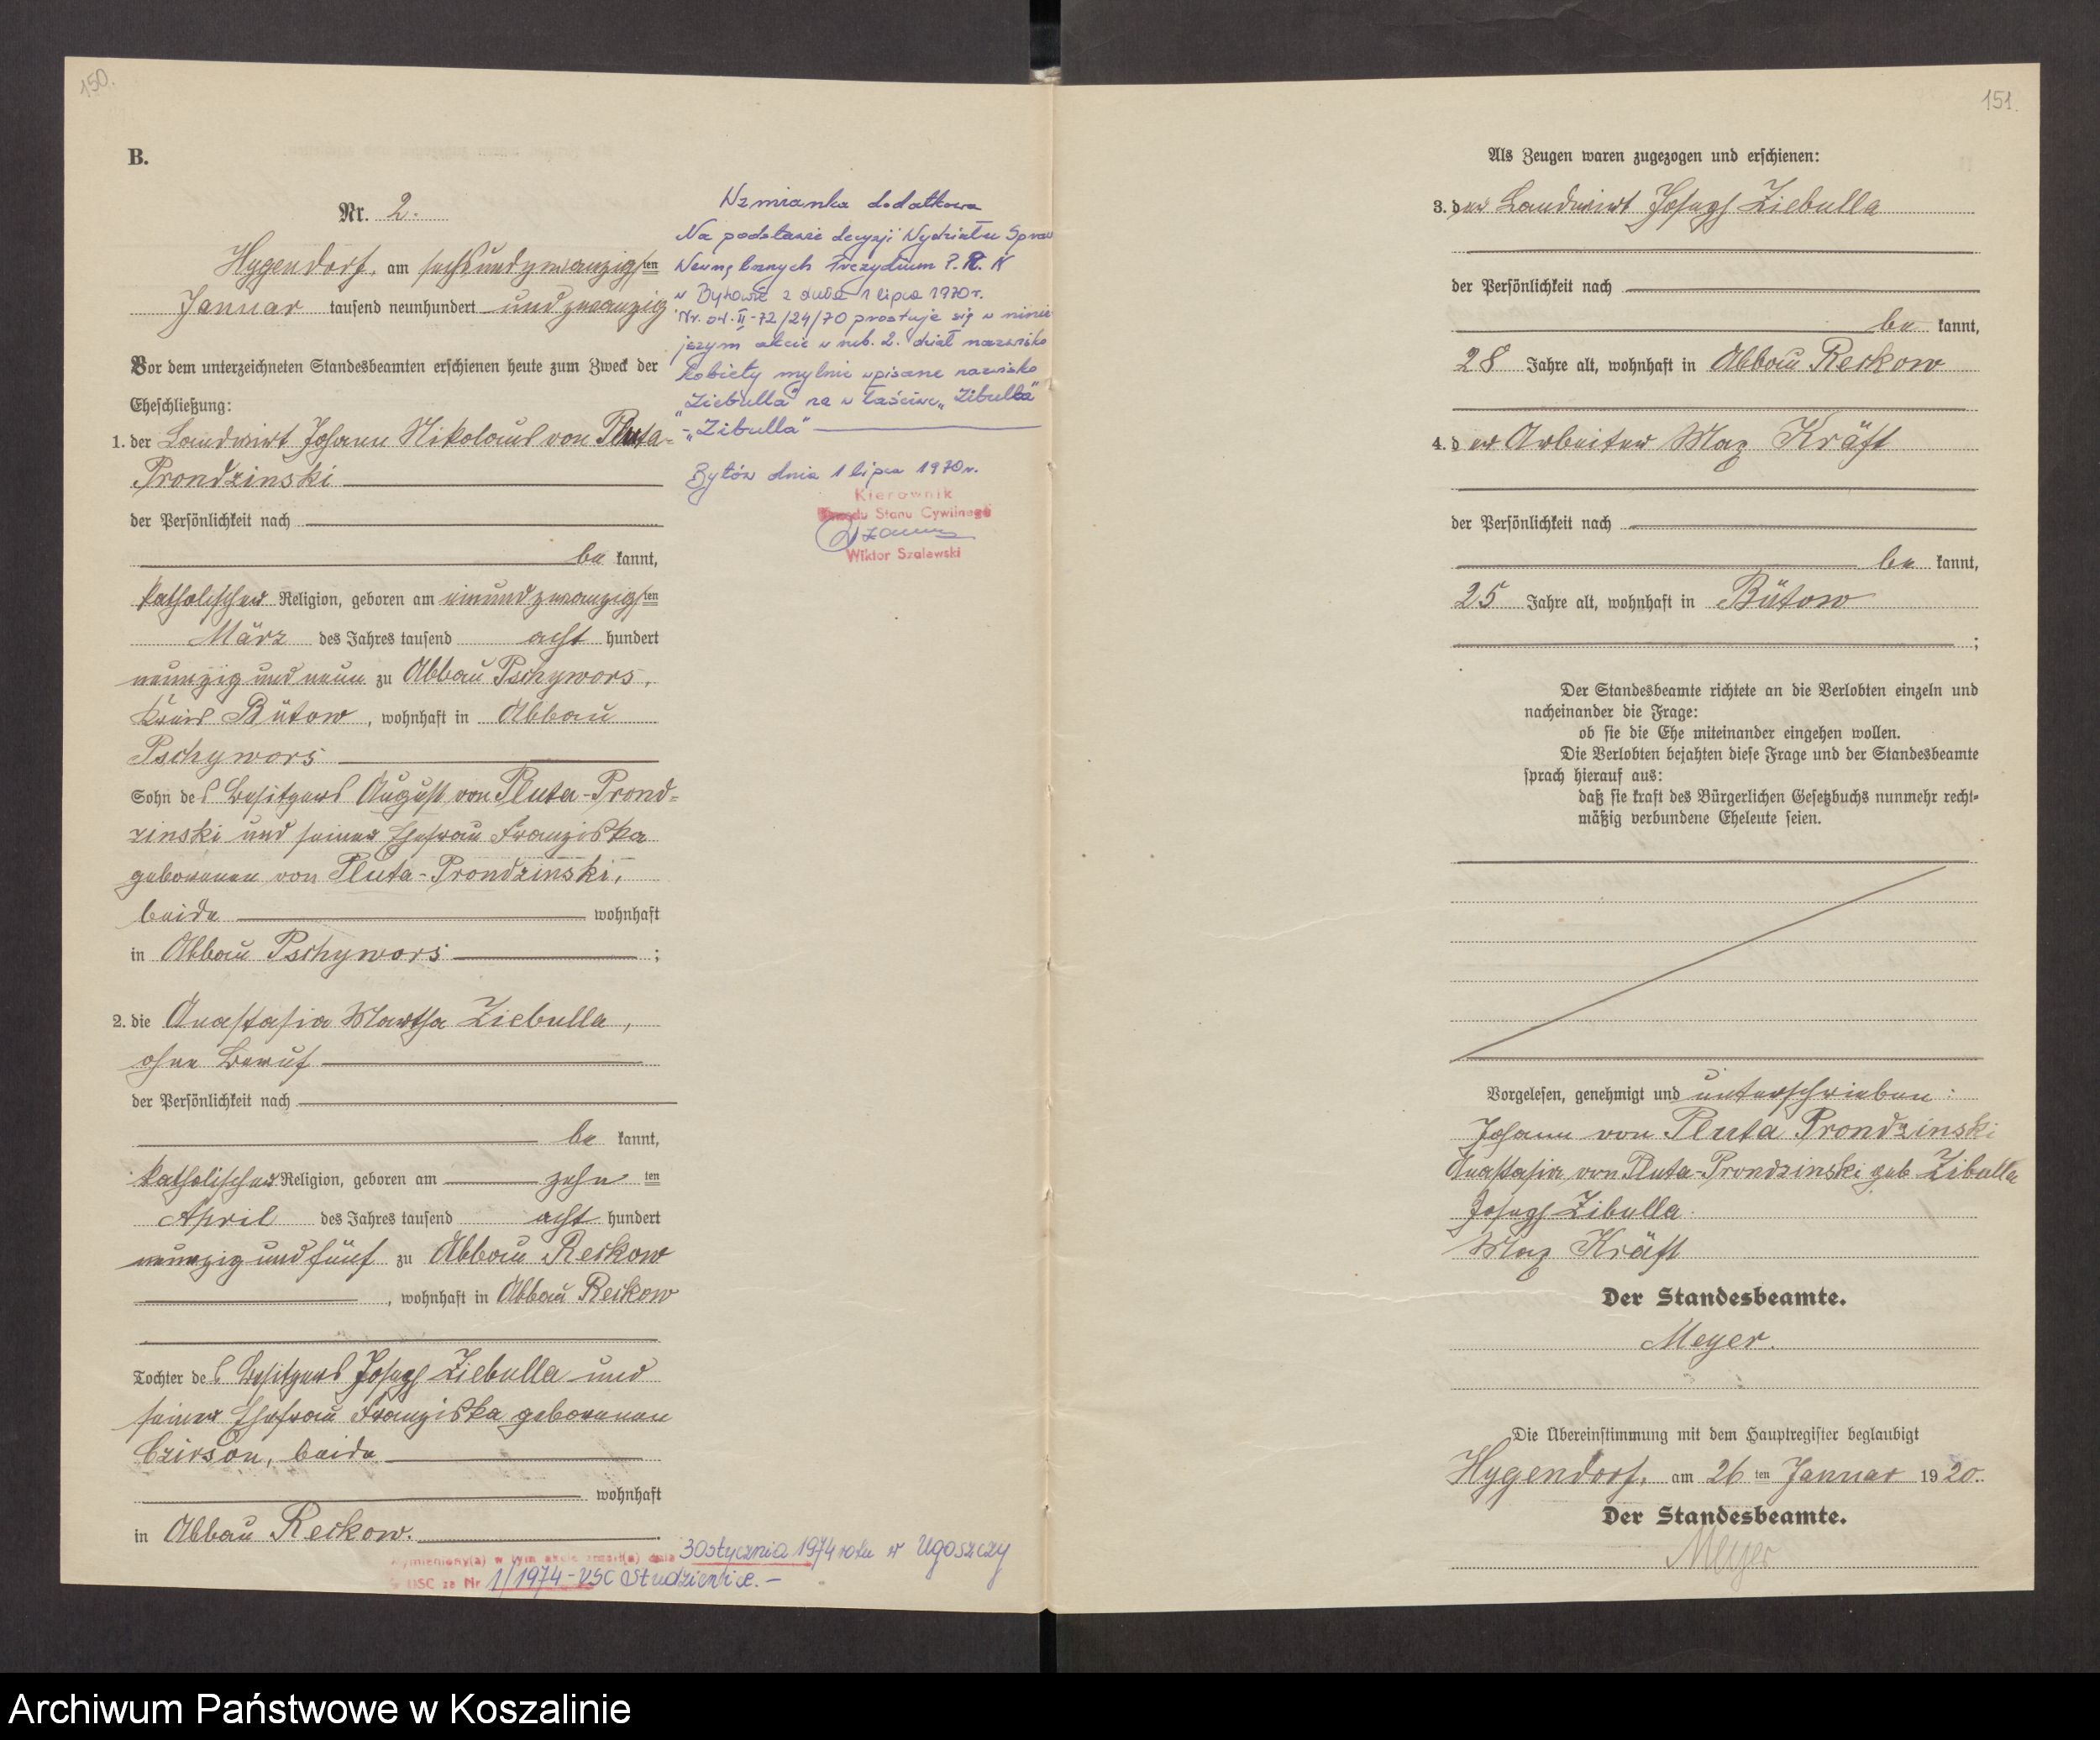 150.
B.
Nr. 2.
Hygendorf, am sechsundzwanzigsten
Januar tausend neunhundert und zwanzig
Vor dem unterzeichneten Standesbeamten erschienen heute zum Zweck der
Eheschließung:
1. der Landwirt Johann Nikolaus von Pluta-
Prondzinski
der Persönlichkeit nach
be kannt,
katholischer Religion, geboren am einundzwanzigsten
März des Jahres tausend acht hundert
neunzig und neun zu Abbau Pschywors,
Kreis Bütow, wohnhaft in Abbau
Pschywors
Sohn des Besitzers August von Pluta-Prond=
zinski und seiner Ehefrau Franziska
geborenen von Pluta-Prondzinski,
beide wohnhaft
in Abbau Pschywors ;
2. die Anastasia Martha Ziebulla,
ohne Beruf
der Persönlichkeit nach
be kannt,
katholischer Religion, geboren am zehn ten
April des Jahres tausend acht hundert
neunzig und fünf zu Abbau Reckow
, wohnhaft in Abbau Reckow
Tochter des Besitzers Joseph Ziebulla und
seiner Ehefrau Franziska geborenen
Czirson, beide
wohnhaft
in Abbau Reckow.
Wzmianka dodatkowa
Na podstawie decyzji Wydziału Spraw
Wewnętrznych Prezydium P.R.N
w Bytowie z dnia 1 lipca 1970 r.
Nr. SA. II-72/24/70 prostuje się w niniej
jszym akcie w rub. 2. dział nazwisko
kobiety mylnie wpisane nazwisko
"Ziebulla" na właściwe "Zibulla"
- "Zibulla"
Bytów dnia 1 lipca 1970 r.
Kierownik
Urzędu Stanu Cywilnego
Wiktor Szalewski
Wymieniony(a) w tym akcie zmarł(a) dnia 30 stycznia 1974 roku w Ugoszczy
USC za Nr 1/1974 - USC Studzienice. -
151.
Als Zeugen waren zugezogen und erschienen:
3. der Landwirt Joseph Ziebulla
der Persönlichkeit nach
be kannt,
28 Jahre alt, wohnhaft in Abbau Reckow
4. der Arbeiter Max Kräft
der Persönlichkeit nach
be kannt,
25 Jahre alt, wohnhaft in Bütow
;
Der Standesbeamte richtete an die Verlobten einzeln und
nacheinander die Frage:
ob sie die Ehe miteinander eingehen wollen.
Die Verlobten bejahten diese Frage und der Standesbeamte
sprach hierauf aus:
daß sie kraft des Bürgerlichen Gesetzbuchs nunmehr recht=
mäßig verbundene Eheleute seien.
Vorgelesen, genehmigt und unterschrieben:
Johann von Pluta Prondzinski
Anastasia von Pluta-Prondzinski geb Zibulla
Joseph Zibulla.
Max Kräft
Der Standesbeamte.
Meyer.
Die Übereinstimmung mit dem Hauptregister beglaubigt
Hygendorf, am 26 ten Januar 1920.
Der Standesbeamte.
Meyer
Archiwum Państwowe w Koszalinie